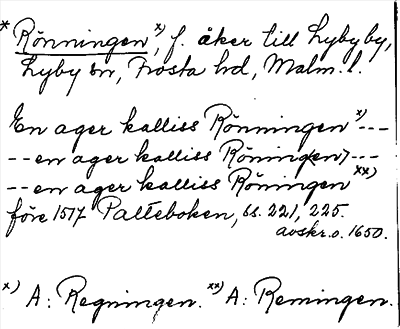 * Rönningen x), f. åker till Lyby by,
Lyby sn, Frosta hd, Malm. l.
En ager kalliss Rönningen x) ---
-- en ager kalliss Röning(en) ---
-- en ager kalliss Röningen xx)
före 1577 Palteboken, bs. 221, 225.
avskr. o. 1650.
x) A: Regningen. xx) A: Remingen.